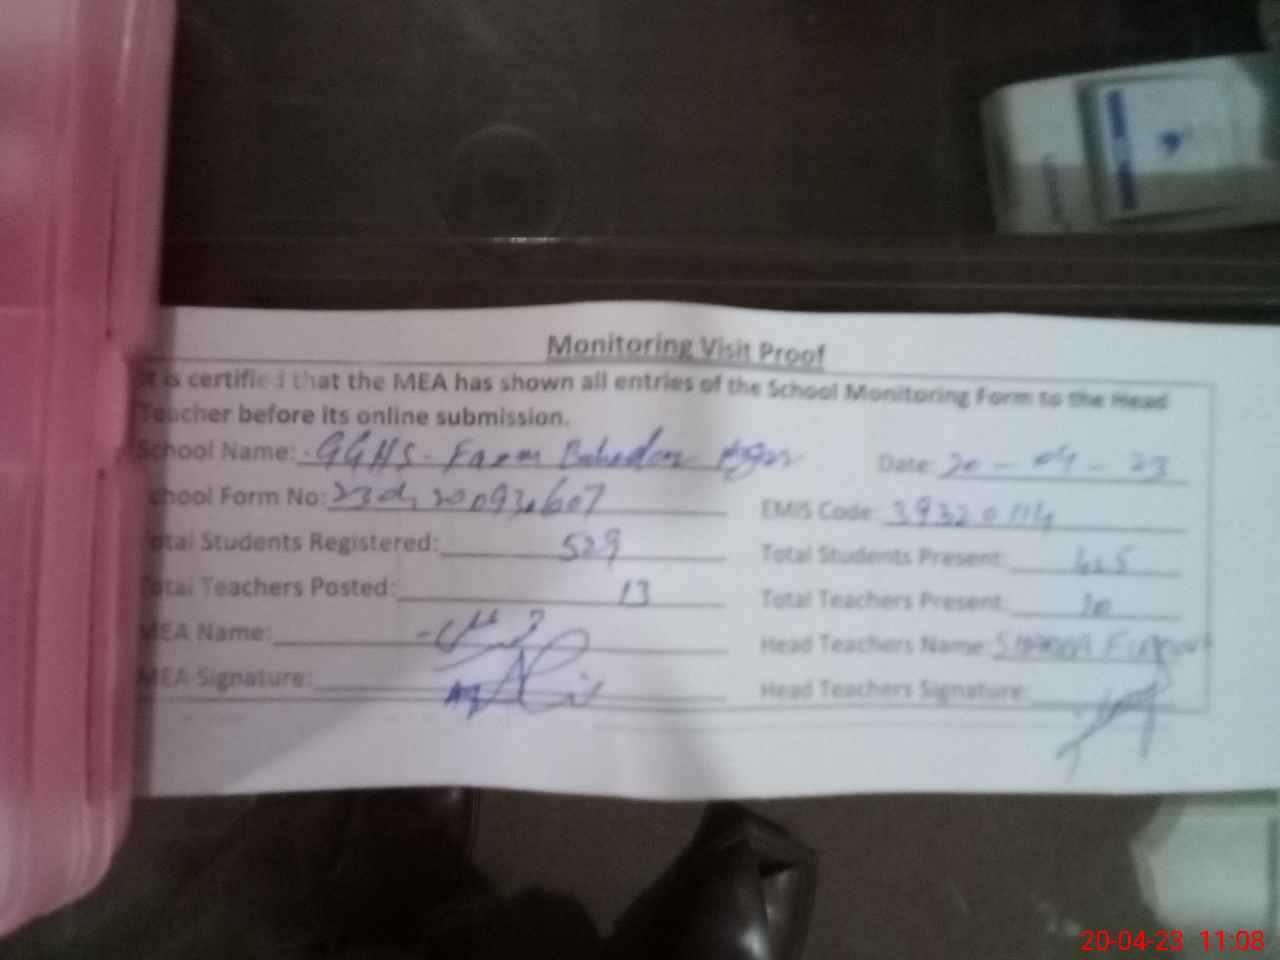 Monitoring Visit Proof
It is certified that the MEA has shown all entries of the School Monitoring Form to the Head
Teacher before its online submission.
School Name: GGHS. Farm Date: 20-04-23
School Form No: EMIS Code: 39320114
Total Students Registered: 529 Total Students Present:
Total Teachers Posted: 13 Total Teachers Present: 10
MEA Name: Head Teachers Name:
MEA Signature: Head Teachers Signature:
20-04-23 11:08